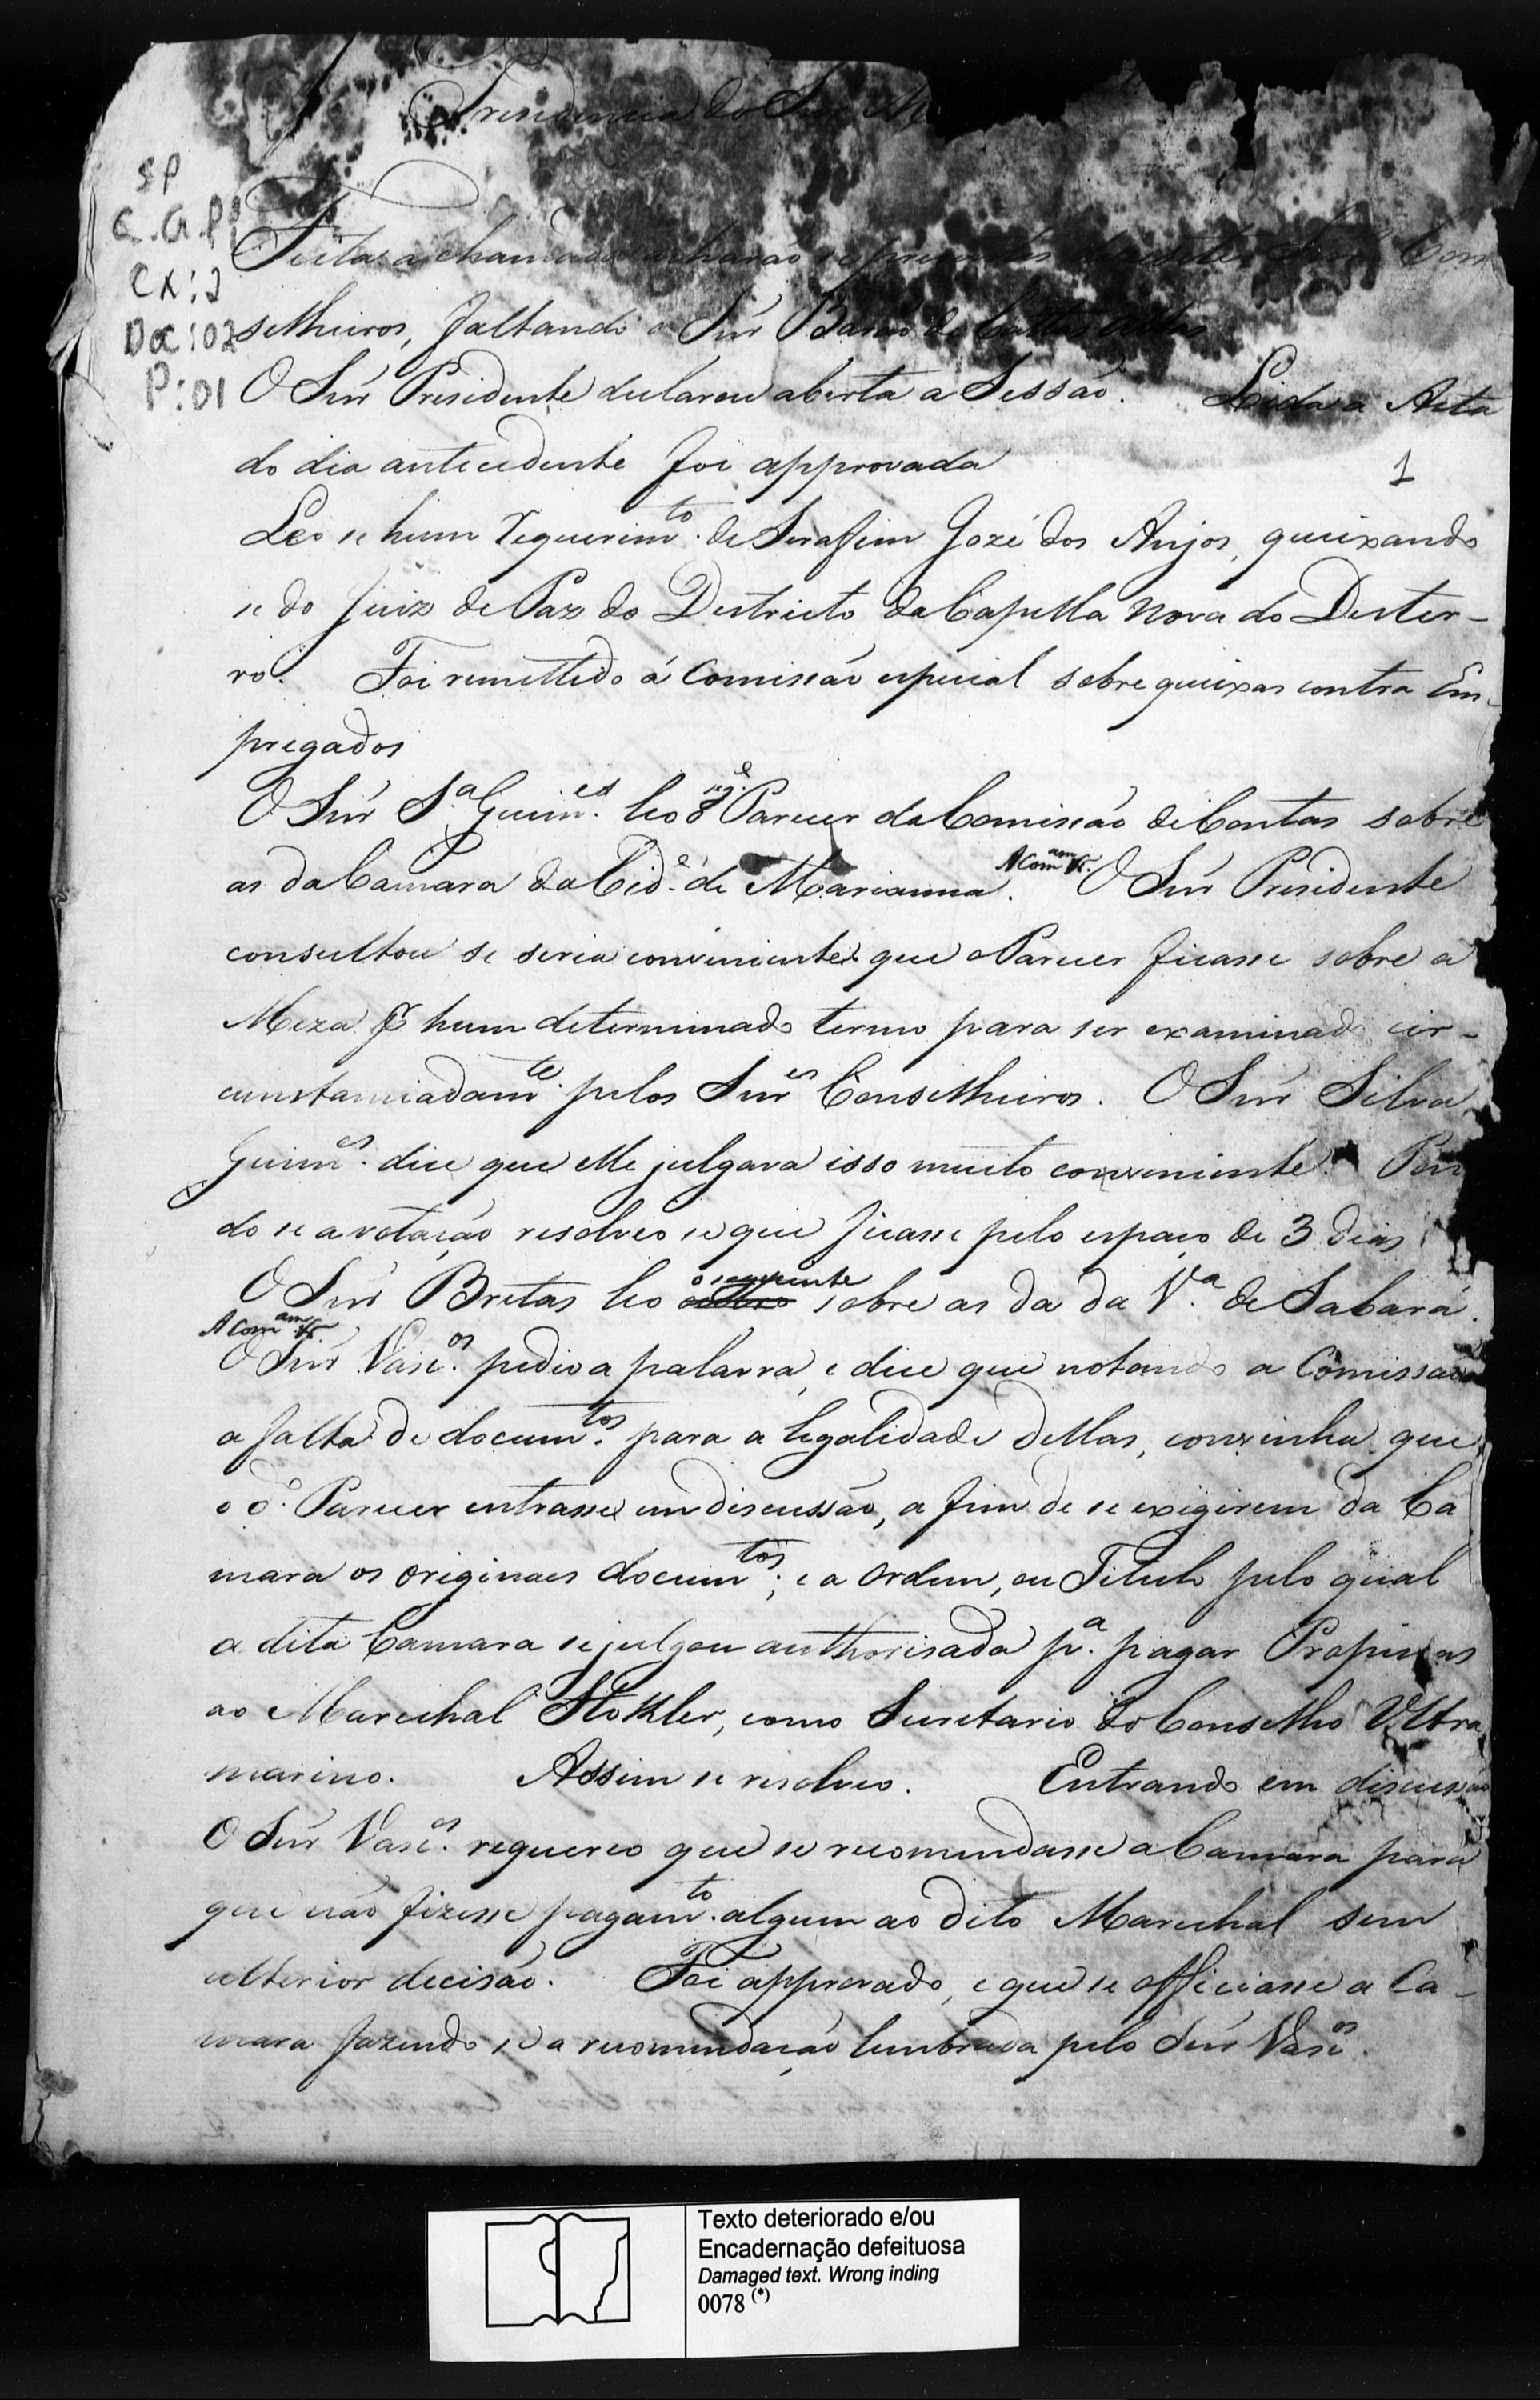 Presidencia do Snr
SP
C.G.P1
CX:2
Doc:02
P:01
Feita a chamada acharão se presentes Con
selheiros, faltando o Snr Barão de Catas Altas
O Snr Presidente declarou aberta a Sessão. Lida a Acta
do dia antecedente foi approvada
1
Leo se hum requerim.to de Serafim Jozé dos Anjos, queixando
se do Juiz de Paz do Destricto da Capella Nova do Dester-
ro. Foi remettido á Comissão especial sobre queixas contra Em-
pregados
O Snr S.a Guim.es leo o seg.e Parecer da Comissão de Contas sobre
as da Camara da Cid.e de Marianna. O Snr Presidente
consultou se seria conveniente que o Parecer ficasse sobre a
Meza por hum determinado termo para ser examinado cir-
cunstanciadam.te pelos Snres Conselheiros. O Snr Silva
Guim.es dice que elle julgava isso muito conveniente. Pon
do se a votação resolveo se que ficasse pelo espaço de 3 dias
O Snr Bretas leo outro o seguinte sobre as da da V.a de Sabará.
O Snr Vasc.os pedio a palavra, e dice que notando a Comissão
a falta de docum.tos para a legalidade dellas, convinha que
o d.o Parecer entrasse em discussão, a fim de se exigirem da Ca
mara os originaes docum.tos, e a Ordem, ou Titulo pelo qual
a dita Camara se julgou authorisada p.a pagar Propinas
ao Marechal Stokler, como Secretario do Conselho Ultra
marino. Assim se resolveo. Entrando em discussão
O Snr Vasc.os requereo que se recomendasse a Camara para
que não fizesse pagam.to algum ao dito Marechal sem
ulterior decisão. Foi approvado, e que se officiasse a Ca-
mara fazendo se a recomendação lembrada pelo Snr Vasc.os
Texto deteriorado e/ou
Encadernação defeituosa
Damaged text. Wrong inding
0078 (*)